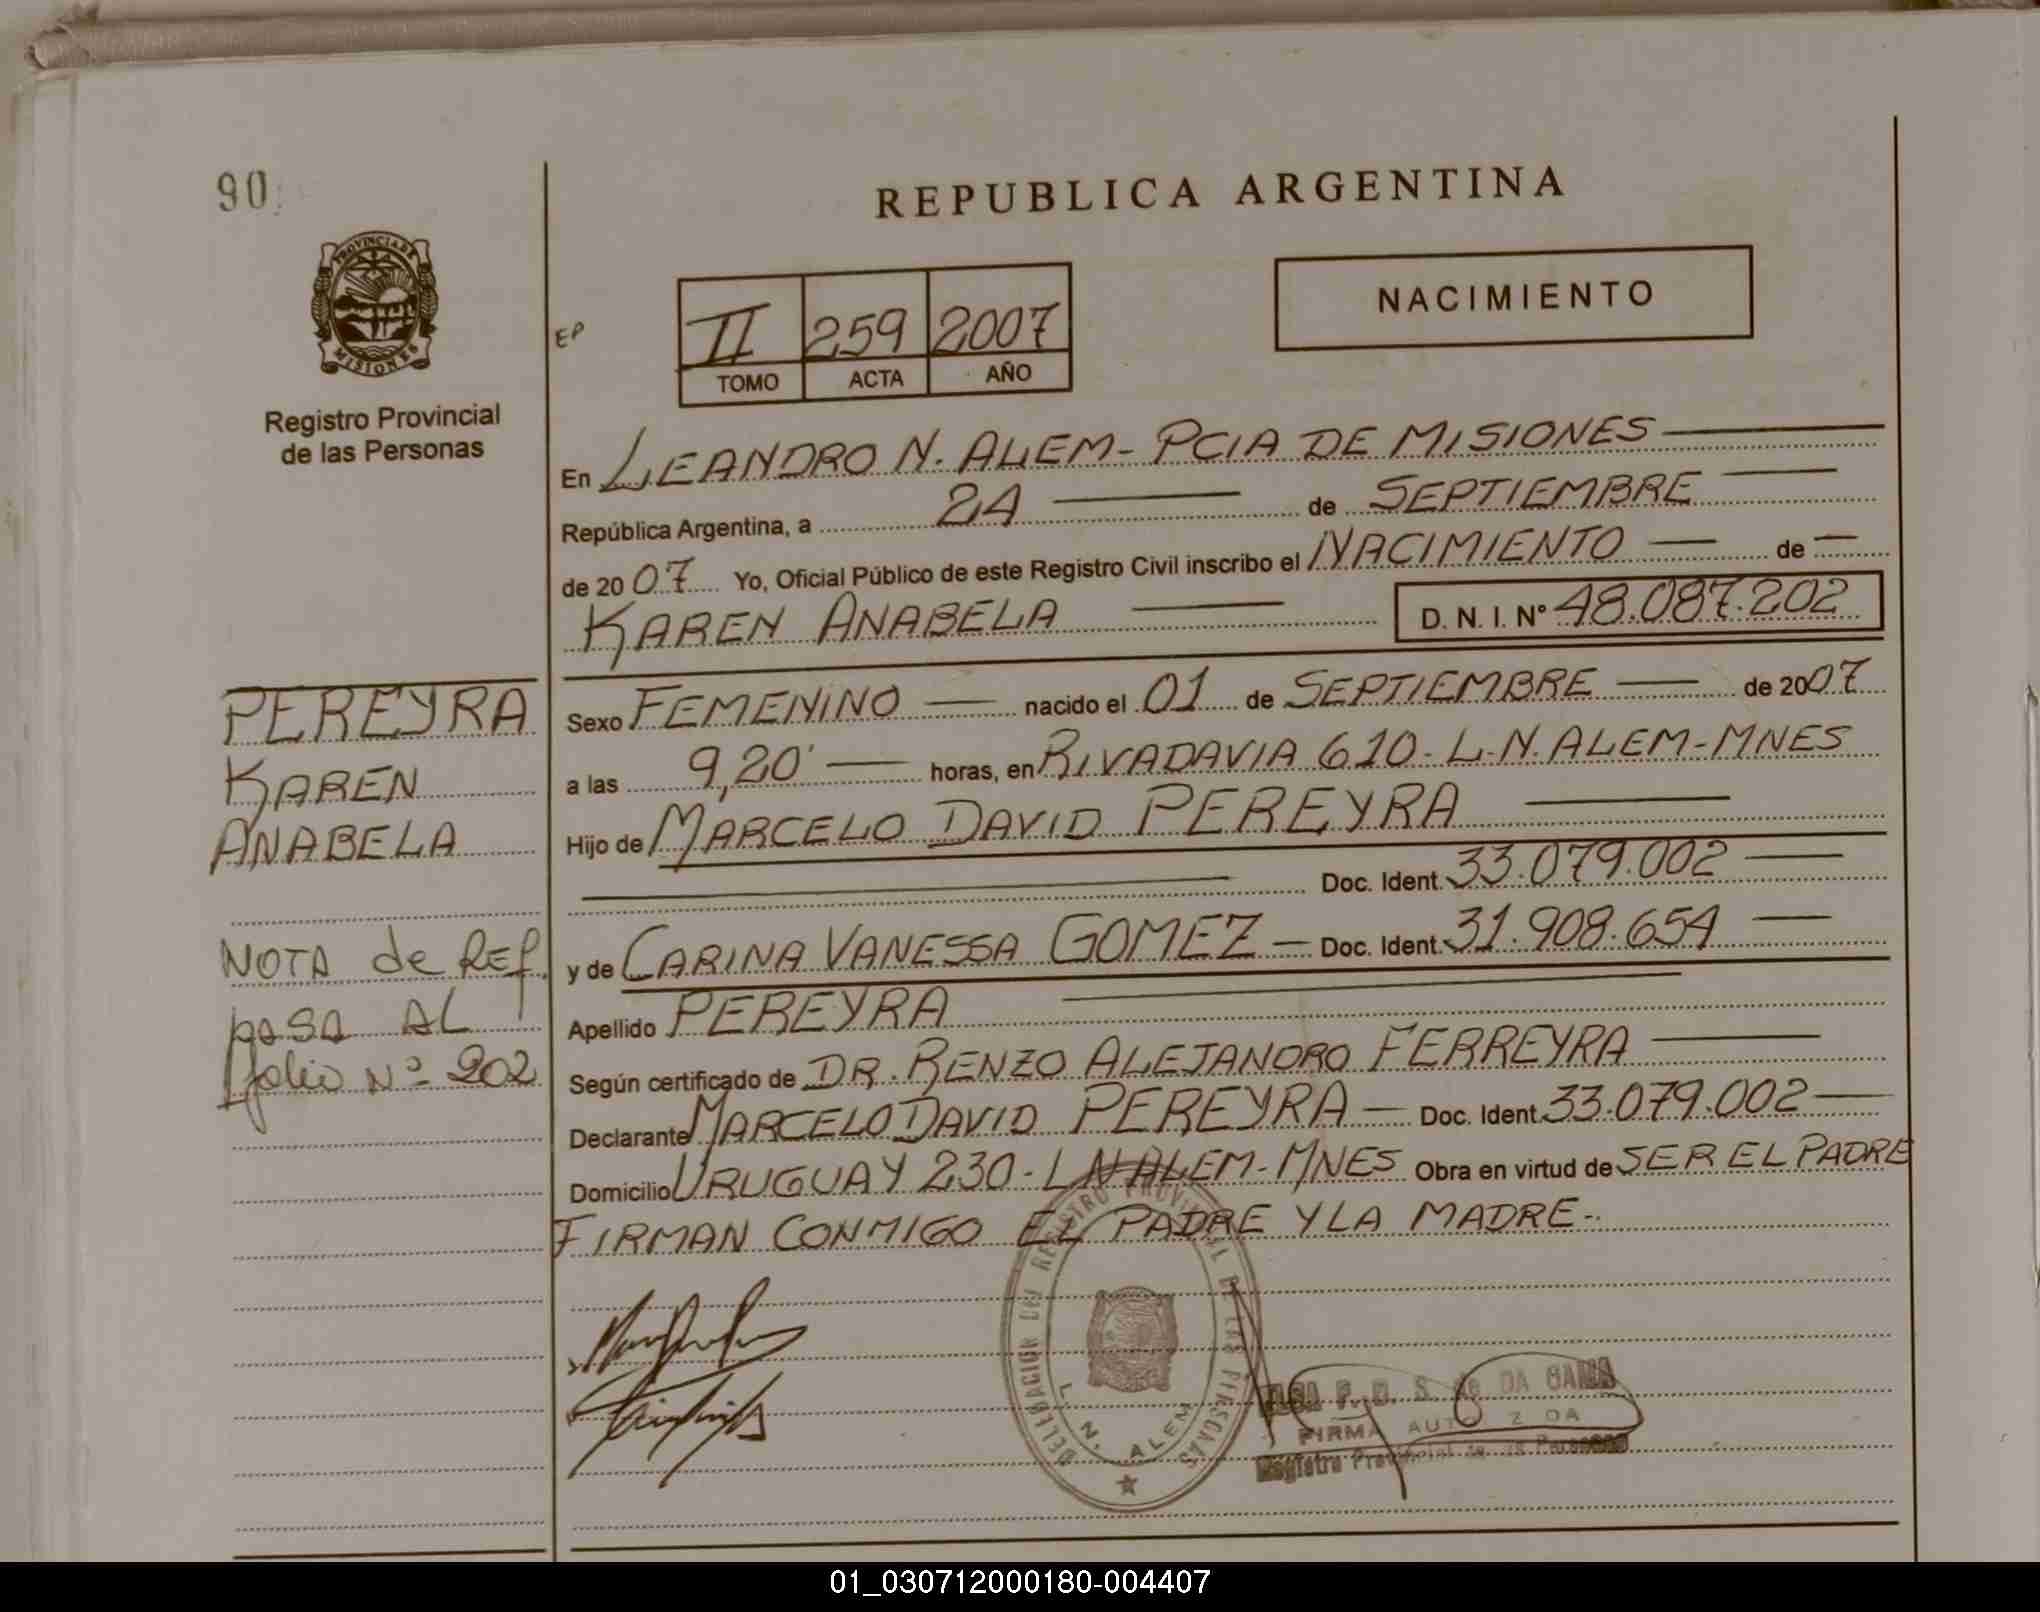 90
REPUBLICA ARGENTINA
PROVINCIA DE
MISIONES
Registro Provincial
de las Personas
EP
II 259 2007
TOMO ACTA AÑO
NACIMIENTO
En LEANDRO N. ALEM - PCIA DE MISIONES
República Argentina, a 24 de SEPTIEMBRE
de 2007 Yo, Oficial Público de este Registro Civil inscribo el NACIMIENTO de
KAREN ANABELA D. N. I. N° 48.087.202
PEREYRA
KAREN
ANABELA
NOTA de REF.
pASA AL
folio Nº 202
Sexo FEMENINO nacido el 01 de SEPTIEMBRE de 2007
a las 9,20' horas, en RIVADAVIA 610 - L.N. ALEM - MNES
Hijo de MARCELO DAVID PEREYRA
Doc. Ident. 33.079.002
y de CARINA VANESSA GOMEZ Doc. Ident. 31.908.654
Apellido PEREYRA
Según certificado de DR. RENZO ALEJANDRO FERREYRA
Declarante MARCELO DAVID PEREYRA Doc. Ident. 33.079.002
Domicilio URUGUAY 230 - L N ALEM - MNES Obra en virtud de SER EL PADRE
FIRMAN CONMIGO EL PADRE Y LA MADRE -
DELEGACION DEL REGISTRO PROVINCIAL DE LAS PERSONAS
L. N. ALEM
DA GAMA
FIRMA AUTORIZADA
Registro Provincial de las Personas
01_030712000180-004407